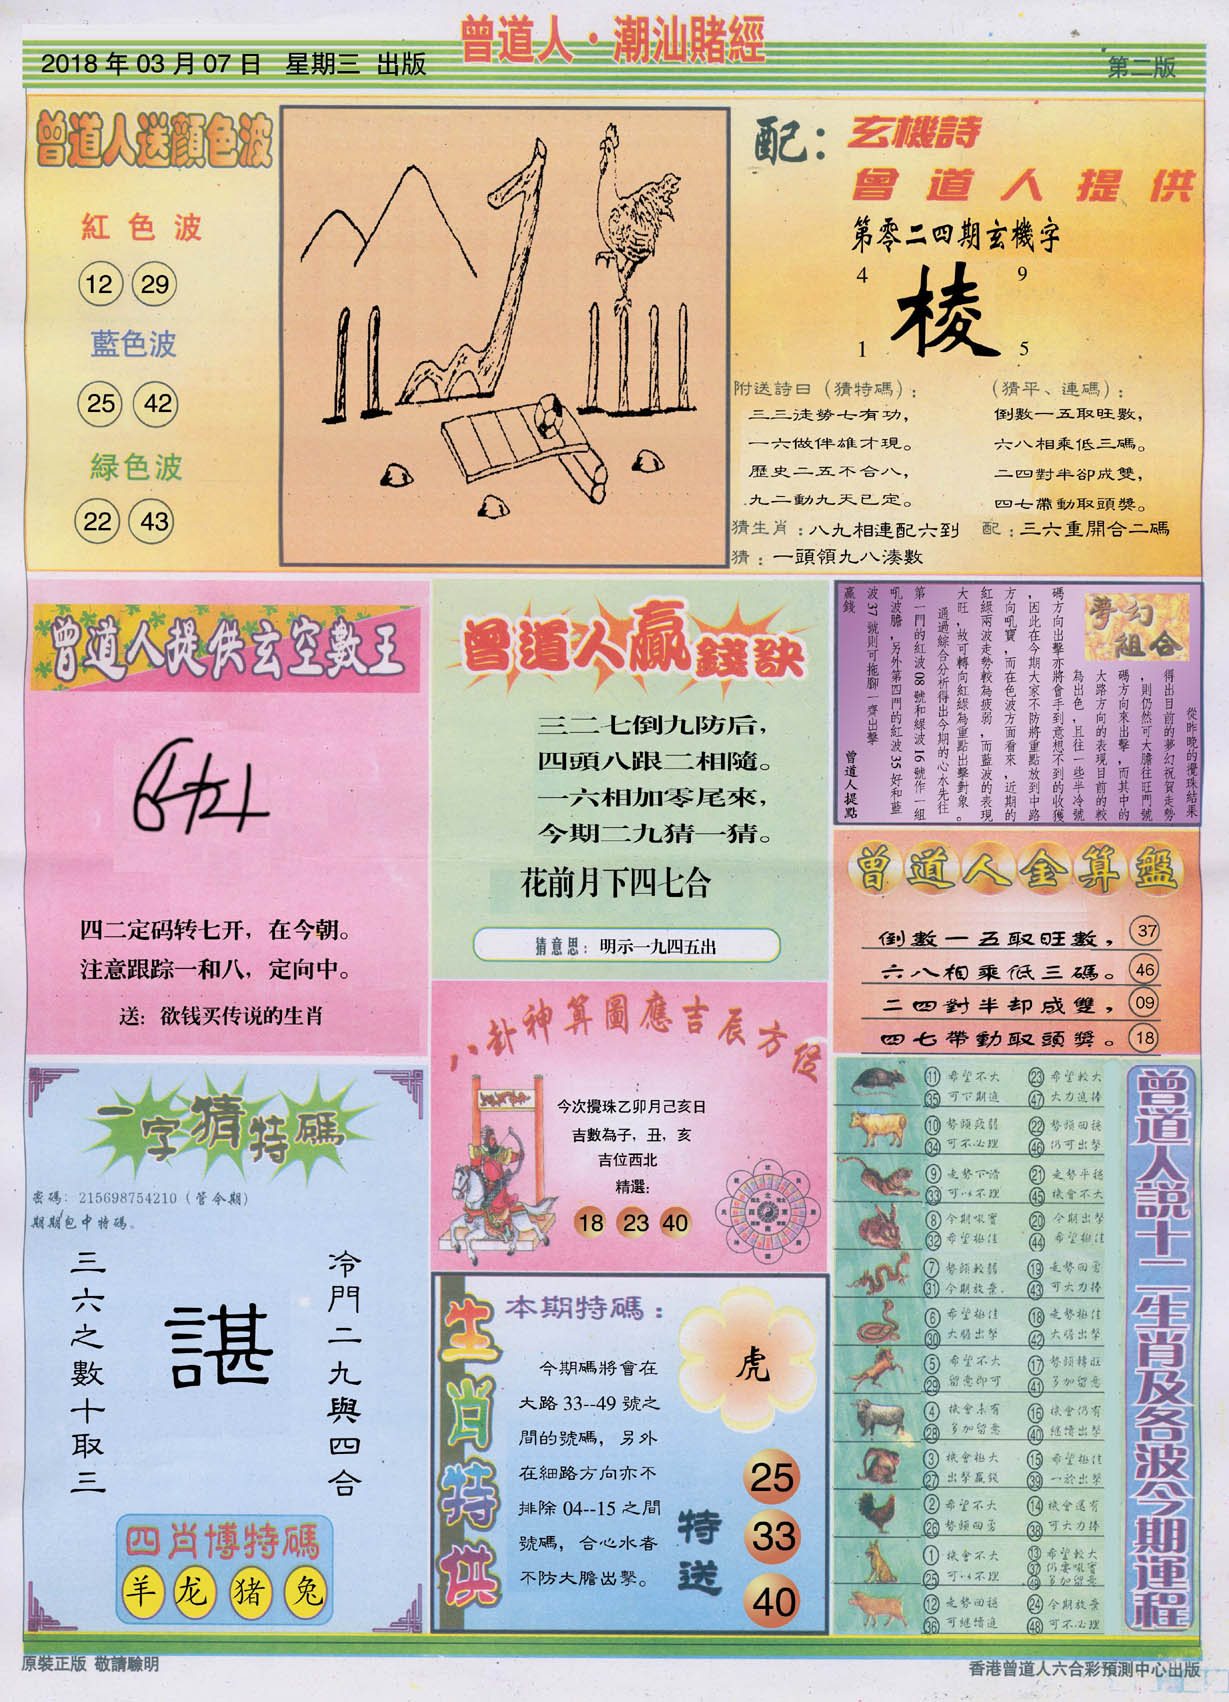 曾道人·潮汕賭經
2018年03月07日 星期三 出版
第二版
曾道人送顏色波
紅色波
12 29
藍色波
25 42
緑色波
22 43
配：玄機詩
曾道人提供
第零二四期玄機字
4 9
棱
1 5
附送詩曰（猜特碼）：
三三徒勞七有功，
一六做伴雄才現。
歷史二五不合八，
九二動九天已定。
（猜平、連碼）：
倒數一五取旺數，
六八相乘低三碼。
二四對半卻成雙，
四七帶動取頭獎。
猜生肖：八九相連配六到
配：三六重開合二碼
猜：一頭領九八湊數
曾道人提供玄空數王
四二定码转七开，在今朝。
注意跟踪一和八，定向中。
送：欲钱买传说的生肖
曾道人贏錢訣
三二七倒九防后，
四頭八跟二相隨。
一六相加零尾來，
今期二九猜一猜。
花前月下四七合
猜意思：明示一九四五出
夢幻組合
從昨晚的攪珠結果
得出目前的夢幻祝賀走勢
，則仍然可大膽往旺門號
碼方向來出擊，而其中的
大路方向的表現目前的較
為出色，且往一些半冷號
碼方向出擊亦將會手到意想不到的收獲
，因此在今期大家不防將重點放到中路
方向吼寶，而在色波方面看來，近期的
紅綠兩波走勢較為疲弱，而藍波的表現
大旺，故可轉向紅綠為重點出擊對象。
通過綜合分析得出今期的心水先往
第一門的紅波08號和綠波16號作一組
吼波膽，另外第四門的紅波35好和藍
波37號則可拖腳一齊出擊
贏錢
曾道人提點
曾道人金算盤
倒數一五取旺數， 37
六八相乘低三碼。 46
二四對半却成雙， 09
四七帶動取頭獎。 18
八卦神算圖應吉辰方位
今次攪珠乙卯月己亥日
吉數為子，丑，亥
吉位西北
精選：
18 23 40
一字猜特碼
密碼：215698754210（管今期）
期期包中特碼。
冷門二九與四合
諶
三六之數十取三
四肖博特碼
羊 龙 猪 兔
生肖特供
本期特碼：
今期碼將會在
大路33--49號之
間的號碼，另外
在細路方向亦不
排除04--15之間
號碼，合心水者
不防大膽出擊。
虎
特送
25
33
40
曾道人説十二生肖及各波今期運程
11 希望不大 23 希望較大
35 可下期追 47 大力追捧
10 勢頭疲弱 22 勢頭回穩
34 可不必理 46 仍可出擊
9 走勢下滑 21 走勢平穩
33 可以不理 45 機會不大
8 今期吼寶 20 今期出擊
32 希望極佳 44 希望極佳
7 勢頭較弱 19 走勢回勇
31 今期放棄 43 可大力捧
6 希望極佳 18 走勢極佳
30 大膽出擊 42 大膽出擊
5 希望不大 17 勢頭轉旺
29 留意即可 41 多加留意
4 機會未有 16 機會仍有
28 多加留意 40 繼續出擊
3 機會極大 15 希望極佳
27 出擊贏錢 39 一於出擊
2 希望不大 14 機會還有
26 勢頭回勇 38 可大力捧
1 機會不大 13 希望較大
25 可以不理 37 仍要吼寶
49 多加留意
12 走勢回穩 24 今期放棄
36 可繼續追 48 可不必理
原裝正版 敬請驗明
香港曾道人六合彩預測中心出版